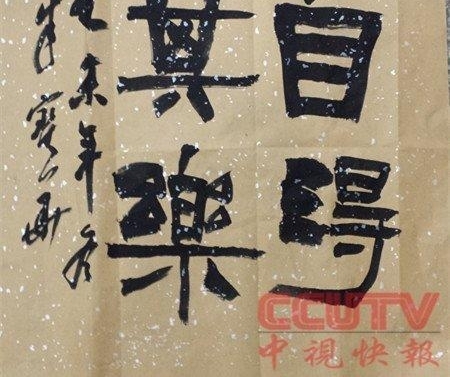 自得
其樂
未年冬
CCUTV
中視快報